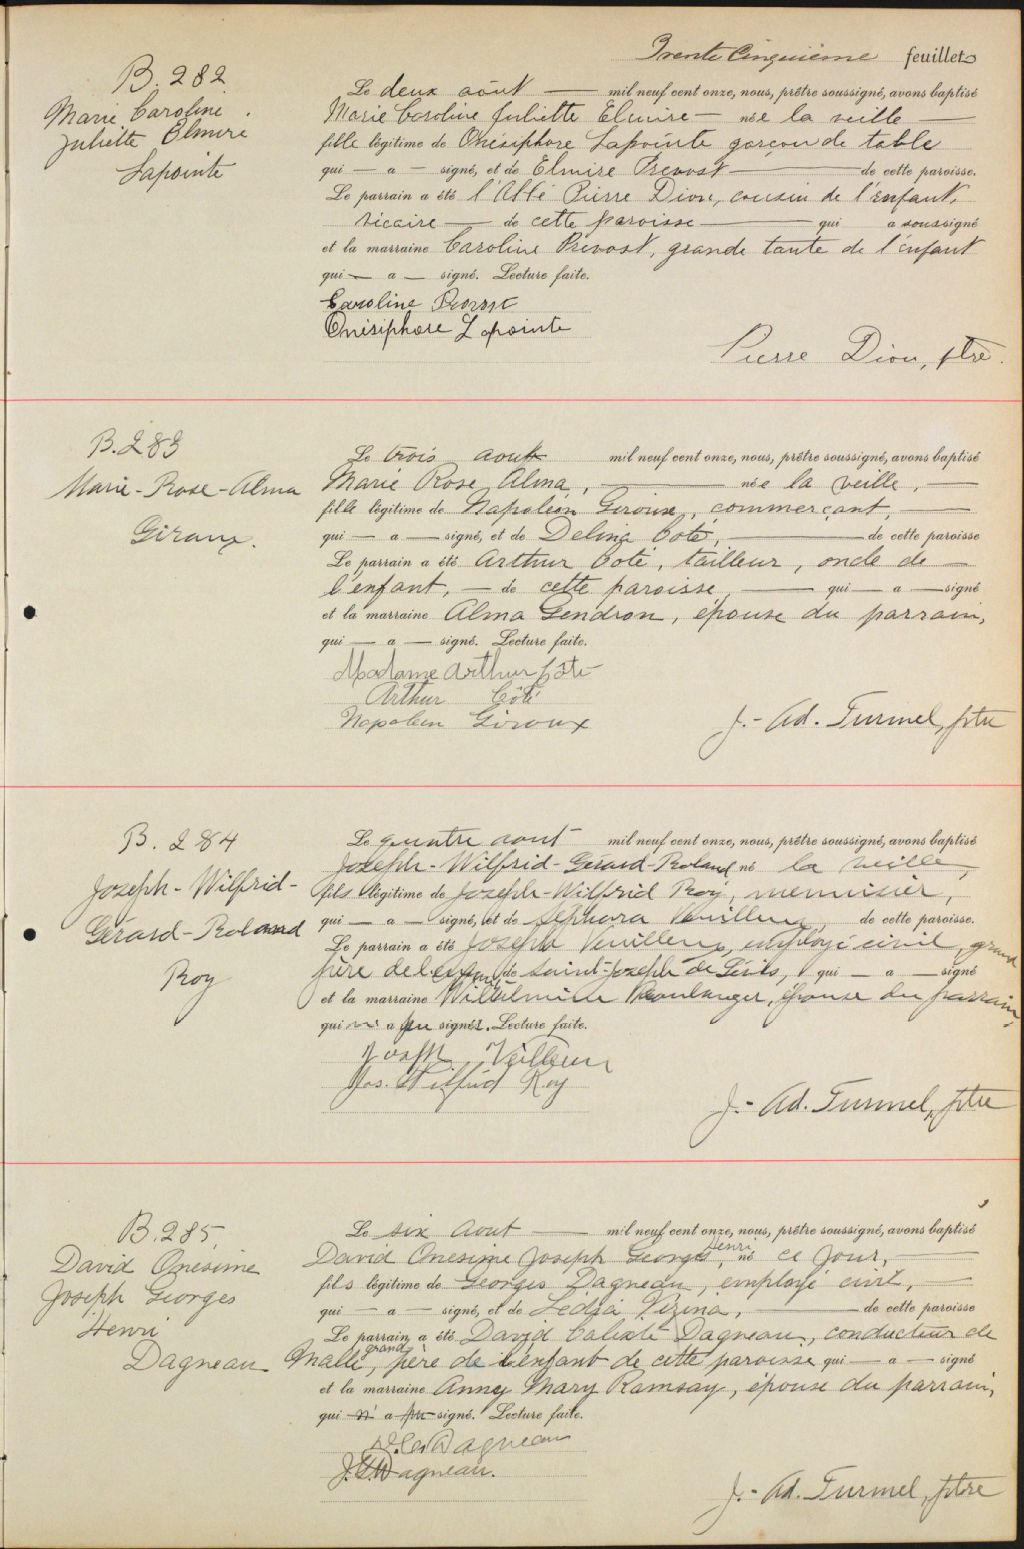 Trente Cinquième feuillet
B. 282
Marie Caroline
Juliette Elmire
Lapointe
Le deux août — mil neuf cent onze, nous, prêtre soussigné, avons baptisé
Marie Caroline Juliette Elmire — née la veille —
fille légitime de Onésiphore Lapointe garçon de table
qui — a — signé, et de Elmire Prevost — de cette paroisse.
Le parrain a été l'Abbé Pierre Dion, cousin de l'enfant,
vicaire — de cette paroisse — qui a soussigné
et la marraine Caroline Prévost, grande tante de l'enfant
qui — a — signé. Lecture faite.
Caroline Prevost
Onésiphore Lapointe
Pierre Dion, ptre.
B. 283
Marie-Rose-Alma
Giroux.
Le trois aout mil neuf cent onze, nous, prêtre soussigné, avons baptisé
Marie Rose Alma, — née la veille, —
fille légitime de Napoléon Giroux, commerçant, —
qui — a — signé, et de Delina Coté, — de cette paroisse
Le parrain a été Arthur Coté, tailleur, oncle de —
l'enfant, — de cette paroisse, — qui — a — signé
et la marraine Alma Gendron, épouse du parrain,
qui — a — signé. Lecture faite.
Madame Arthur Côté
Arthur Côté
Napoleon Giroux
J.-Ad. Turmel, ptre
B. 284
Joseph-Wilfrid-
Gérard-Roland
Roy
Le quatre aout mil neuf cent onze, nous, prêtre soussigné, avons baptisé
Joseph-Wilfrid-Gérard-Roland né la veille,
fils légitime de Joseph-Wilfrid Roy, menuisier,
qui — a — signé, et de Séphora Veuilleux, de cette paroisse.
Le parrain a été Joseph Veuilleux, employé civil, grand
père de l'enfant, de Saint-Joseph de Lévis, qui — a — signé
et la marraine Wilhelmine Boulanger, épouse du parrain,
qui n' a pu signer. Lecture faite.
Joseph Veilleux
Jos. Wilfrid Roy
J.-Ad. Turmel, ptre
B. 285
David Onésime
Joseph Georges
Henri
Dagneau
Le six Aout — mil neuf cent onze, nous, prêtre soussigné, avons baptisé
David Onesime Joseph Georges Henri, né ce jour, —
fils légitime de Georges Dagneau, employé civil, —
qui — a — signé, et de Ledia Vézina, — de cette paroisse
Le parrain a été David Calixte Dagneau, conducteur de
Malle, grand père de l'enfant de cette paroisse qui — a — signé
et la marraine Anney Mary Ramsay, épouse du parrain,
qui n' a pu signé. Lecture faite.
D. C. Dagneau
J. G. Dagneau.
J.-Ad. Turmel, ptre